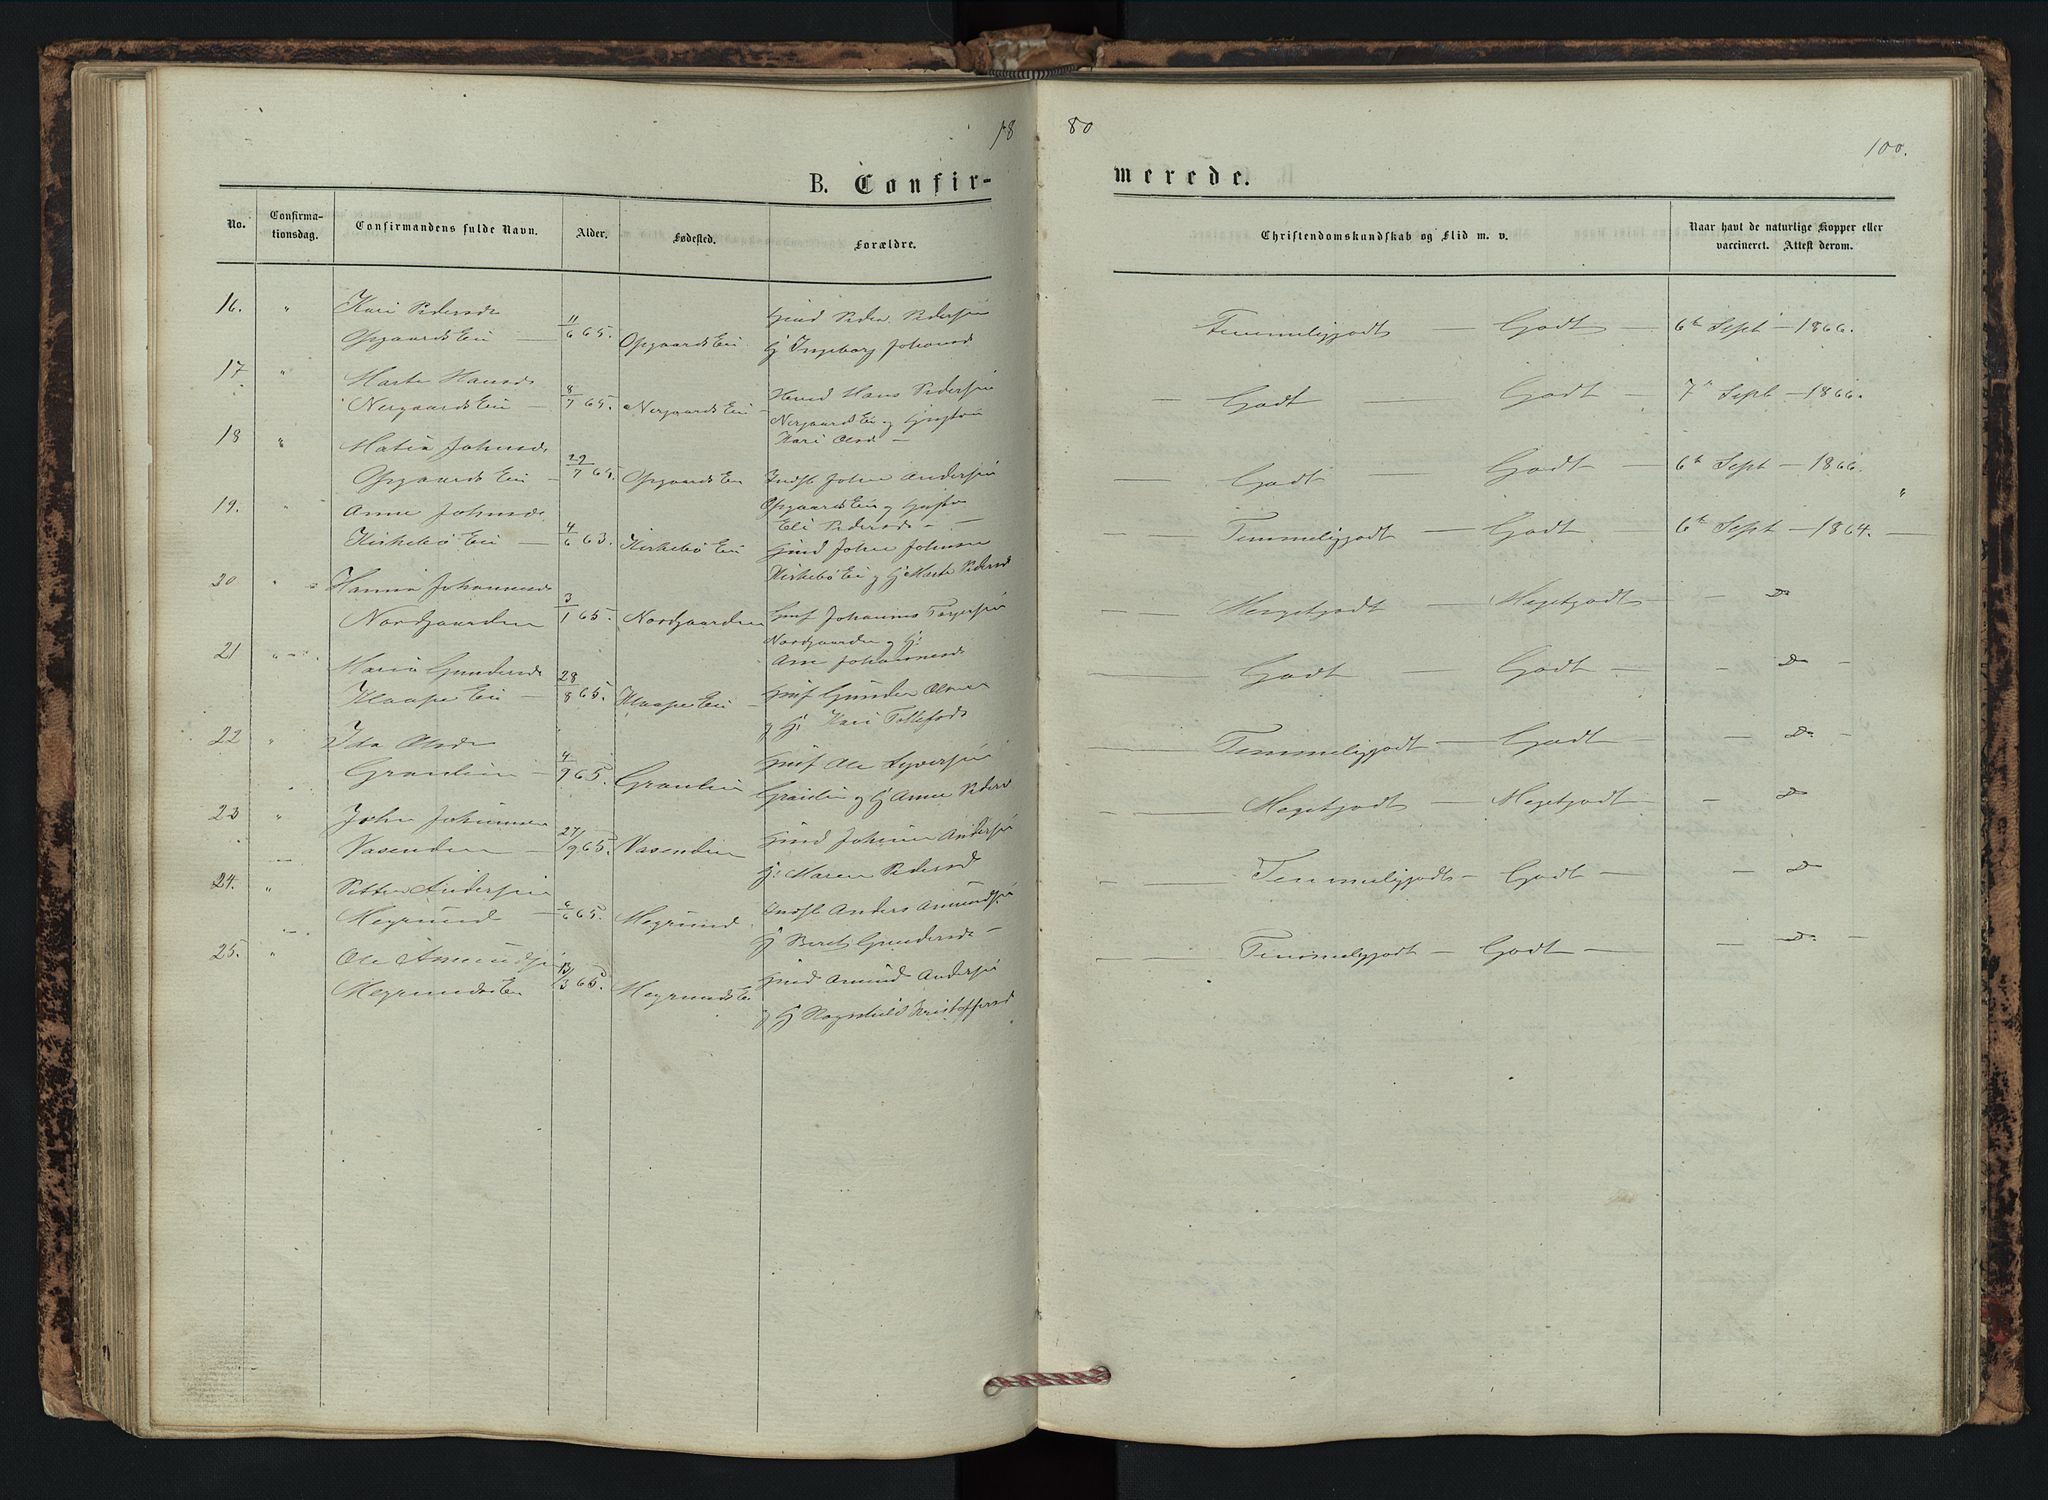 18
80
100.
B. Confir-
merede.
No.
Confirma-
tionsdag.
Confirmandens fulde Navn.
Alder.
Fødested.
Forældre.
Christendomskundskab og Flid m. v.
Naar havt de naturlige Kopper eller
vaccineret. Attest derom.
16. " Kari Pedersd
Opgaards Eie — 11/6 65. Opgaards Eie
Peder Pedersen
Gj Ingeborg Johansd
Temmeliggodt — Godt — 6te Sept — 1866.
17 " Marte Hansd
Nergaards Eie — 8/7 65. Nergaards Eie —
Hans Pedersen
Nergaards Eie og
Kari Olsd —
— Godt — Godt — 7de Sept — 1866.
18 " Johnsd
Opgaards Eie — 22/7 65. Opgaards Eie
Indst John Andersen
Opgaards Eie og
Eli Pedersd —
— Godt — Godt — 6te Sept — 1866.
19. " Anne Johnsd
Kirkebø Eie — 4/6 63. Kirkebø Eie
John Johnsen
Kirkebø Eie og Gj Marte Pedersd
— Temmeliggodt — Godt — 6te Sept — 1864. —
20 " Johannesd
Nordgaarden 3/1 65. Nordgaarden
Johannes Torgersen
Nordgaarden og Gj:
Ane Johannesd
— Megetgodt — Megetgodt — Do
21 " Maria Gundersd
Eie — 28/8 65. Eie —
Gunder Olsen
og Gj: Kari Tollefsd
— Godt — Godt — Do
22 " Ida Olsd
Granlien — 4/9 65. Granlien
Ole Syversen
Granlien og Gj Anne Pedersd
— Temmeliggodt — Godt — Do
23 " John Johannsen
Vasenden — 27/9 65. Vasenden
Andersen
Gj: Maren Pedersd
— Megetgodt — Megetgodt — Do
24. " Petter Andersen
Megrund — 6/6 65. Megrund
Indst Anders Amundsen
Gj Berit Gundersd —
— Temmeliggodt — Godt — Do
25. " Ole Amundsen
Megrunds Eie 13/3 65. Megrunds Eie
Amund Andersen
og Gj Ragnhild Kristoffersd
— Temmeliggodt — Godt — Do